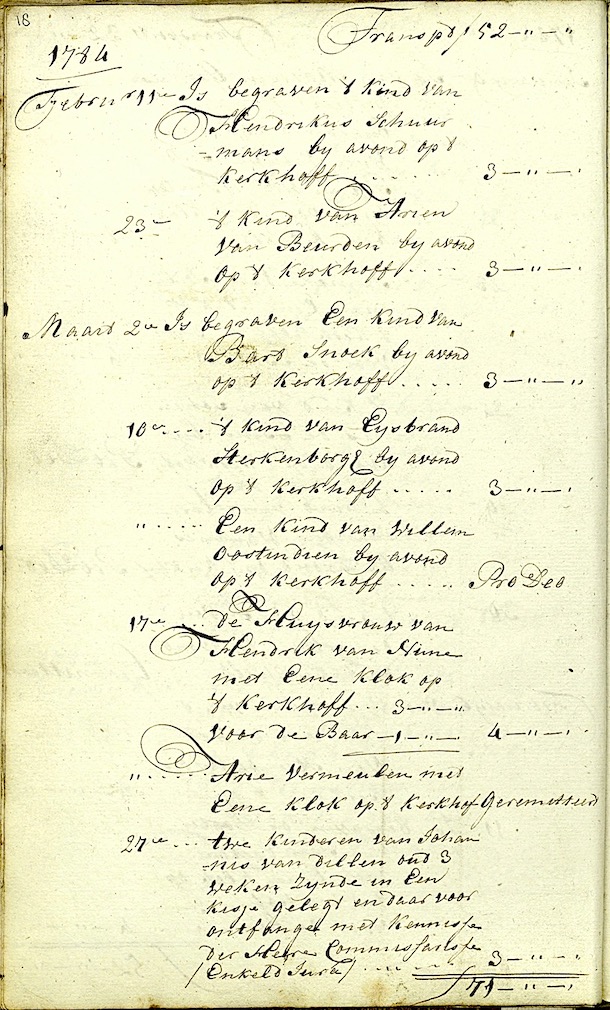 18
Transpt ƒ 52-"-"
1784
Februr 11e Is begraven 't kind van
Hendrikus Schuur
-mans by avond op 't
kerkhoff . . . . . . . 3-"-"
23- 't kind van Arien
van Beurden by avond
op 't kerkhoff . . . . 3-"-"
Maart 2e Is begraven Een kind van
Bart Snoek by avond
op 't kerkhoff . . . . . 3-"-"
10e . . . . 't kind van Eysbrand
Sterkenborg by avond
op 't kerkhoff . . . . . 3-"-"
" . . . . . Een kind van Willem
Oostindien by avond
op 't kerkhoff . . . . . Pro Deo
17e . . . de Huysvrouw van
Hendrik van Nune
met Eene klok op
't kerkhoff . . . 3-"-"
voor de Baar -1-"- 4-"-"
" . . . . . Arie Vermeulen met
Eene klok op 't kerkhof Geremitteerd
27e . . . twe kinderen van Johan
-nis van Dillen oud 3
weken zynde in Een
kisje gelegt en daar voor
ontfange met kennisse
der Heere Commissarisse
(Enkeld Jura) . . . . . . 3-"-"
ƒ 71-"-"